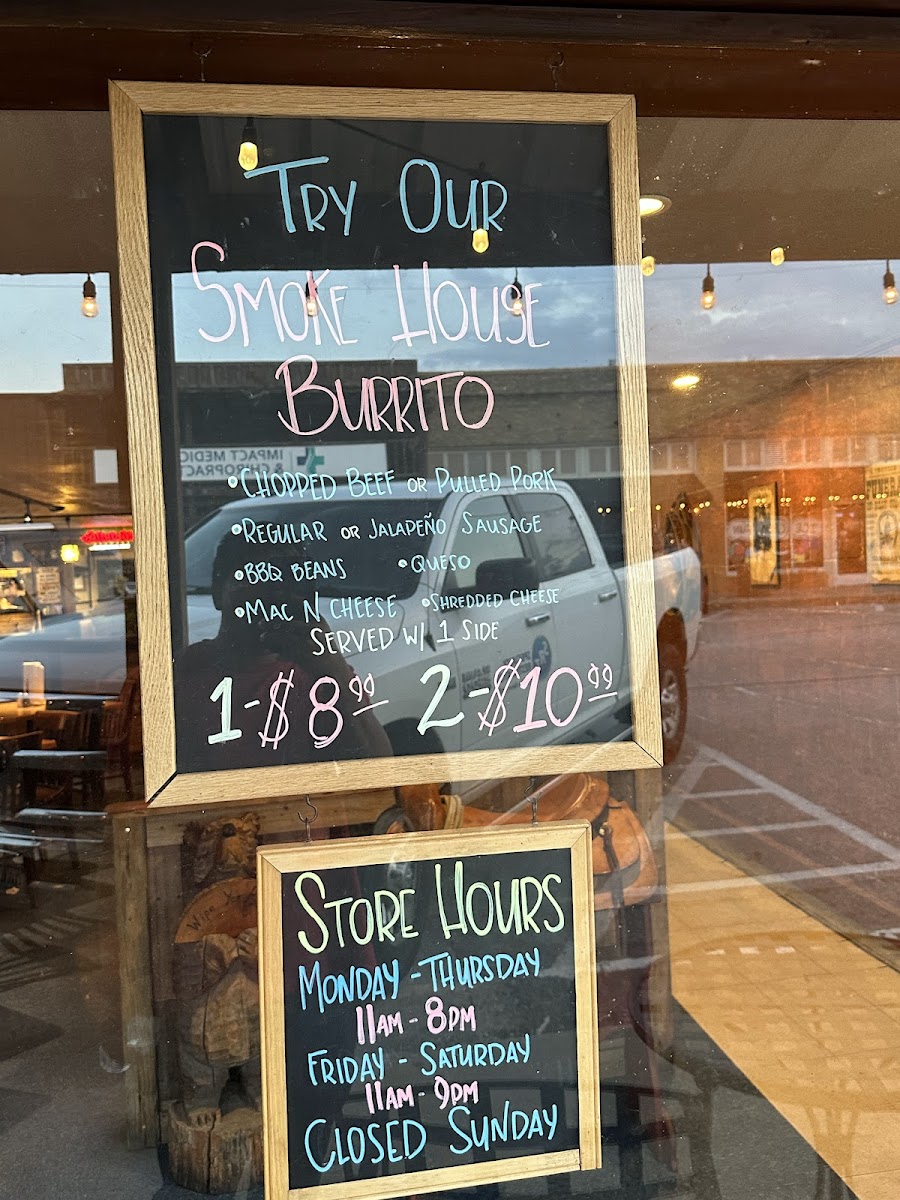 Try Our
Smoke House
Burrito
•Chopped Beef or Pulled Pork
•Regular or Jalapeño Sausage
•BBQ Beans •Queso
•Mac N Cheese •Shredded Cheese
Served w/ 1 Side
1-$8.99 2-$10.99
Store Hours
Monday - Thursday
11am - 8pm
Friday - Saturday
11am - 9pm
Closed Sunday
IMPACT MEDIC
& CHIROPRACT